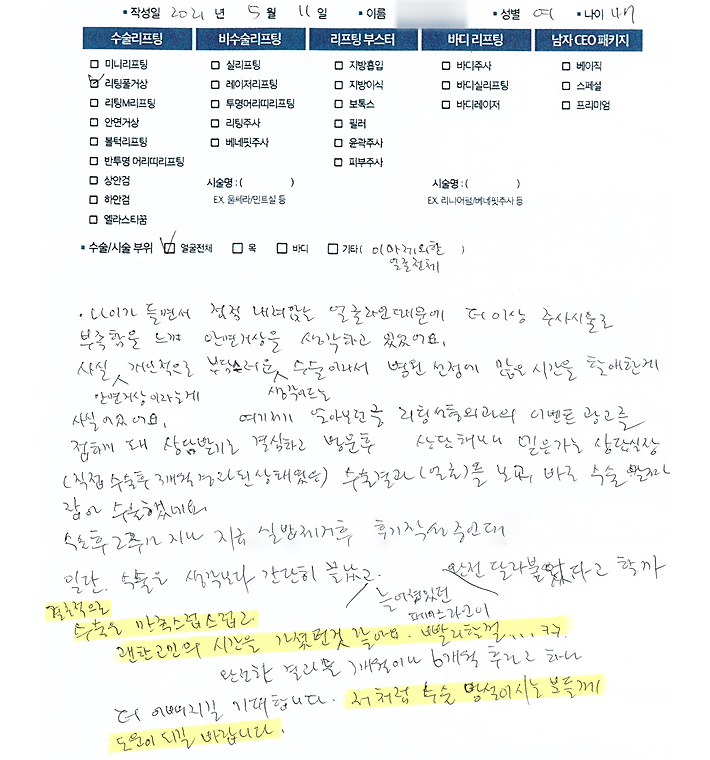 • 작성일 2021 년 5 월 11 일 • 이름 • 성별 여 • 나이
수술리프팅 비수술리프팅 리프팅 부스터 바디 리프팅 남자 CEO 패키지
미니리프팅 실리프팅 지방흡입 바디주사 베이직
리팅풀거상 레이저리프팅 지방이식 바디실리프팅 스페셜
리팅M리프팅 투명머리띠리프팅 보톡스 바디레이저 프리미엄
안면거상 리팅주사 필러
볼턱리프팅 베네핏주사 윤곽주사
반투명 머리띠리프팅 피부주사
상안검 시술명 : ( ) 시술명 : ( )
하안검 EX. 울쎄라/민트실 등 EX. 리니어펌/베네핏주사 등
엘라스티꿈
• 수술/시술 부위 얼굴전체 목 바디 기타( 이마제외한 )
얼굴전체
• 나이가 들면서 점점 내려앉는 얼굴라인때문에 더이상 주사시술로
부족함을 느껴 안면거상을 생각하고 있었어요.
사실 개인적으로 부담스러운 수술이라서 병원 선정에 많은 시간을 할애한게
안면거상이라는게 생각이드는
사실이었어요. 여기저기 알아보던중 리팅성형외과의 이벤트 광고를
접하게 돼 상담받기로 결심하고 방문후 상담해보니 믿음가는 상담실장
(직접 수술후 개월 경과된상태였음) 수술결과(얼굴)를 보고, 바로 수술 날짜
잡아 수술했네요
수술후 2주가 지나 지금 실밥제거후 후기작성중인데
일단. 수술은 생각보다 간단히 끝났고. 완전 달라붙었다고 할까
늘어졌있던
페이스라인이
결론적으로
수술은 만족스럽고
괜한고민의 시간을 가졌던것 같아요. 빨리할걸... ㅋㅋ.
완성된 결과물 개월이나 6개월 후라고 하니
더 이뻐지길 기대합니다. 저처럼 수술 망설이시는 분들께
도움이 되길 바랍니다.